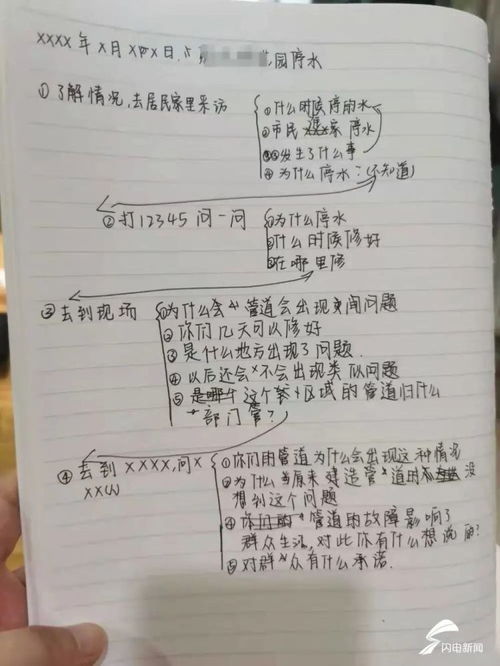 XXXX年X月XX日，园停水
①了解情况，去居民家里采访
①什么时候停的水
②市民家停水
③发生了什么事
④为什么停水：(不知道)
②打12345问一问
①为什么停水
②什么时候修好
③在哪里修
③去到现场
①为什么会管道会出现问题
②你们几天可以修好
③是什么地方出现了问题.
④以后还会不会出现类似问题
⑤是哪个这个区域的管道归什么
部门管？
④去到XXXX,问X
XX(人)
①你们用管道为什么会出现这种情况
②为什么当原来建造管道时没
想到这个问题
④你们的管道的故障影响了
群众生活,对此你有什么想说的?
⑤对群众有什么承诺.
闪电新闻